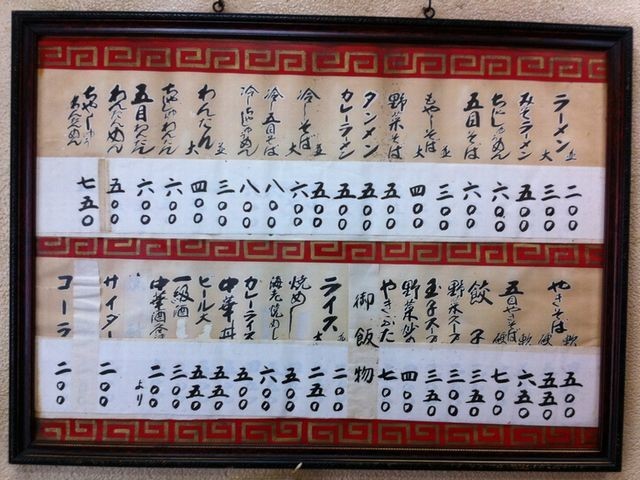 ラーメン 並 二〇〇
大 三〇〇
みそラーメン 五〇〇
ちゃしゅうめん 六〇〇
五目そば 六〇〇
もやしそば 並 三〇〇
大 四〇〇
野菜そば 五〇〇
タンメン 五〇〇
カレーラーメン 五〇〇
冷しそば 並 五〇〇
大 六〇〇
冷し五目そば 八〇〇
冷しちゃしゅうめん 八〇〇
わんたん 並 三〇〇
大 四〇〇
ちゃしゅうわんたん 六〇〇
五目わんたん 六〇〇
わんたんめん 五〇〇
ちゃしゅうわんたんめん 七五〇
やきそば 軟 五〇〇
硬 五五〇
五目やきそば 軟 六五〇
硬 七〇〇
餃子 三〇〇
野菜スープ 三〇〇
玉子スープ 三五〇
野菜炒め 四〇〇
やきぶた 七〇〇
御飯物
ライス 並 二〇〇
大 二五〇
焼めし 五五〇
海老焼めし 六〇〇
カレーライス 五〇〇
中華丼 五五〇
ビール大 五五〇
一級酒 三〇〇
中華酒各種 二〇〇より
サイダー 二〇〇
コーラ 二〇〇